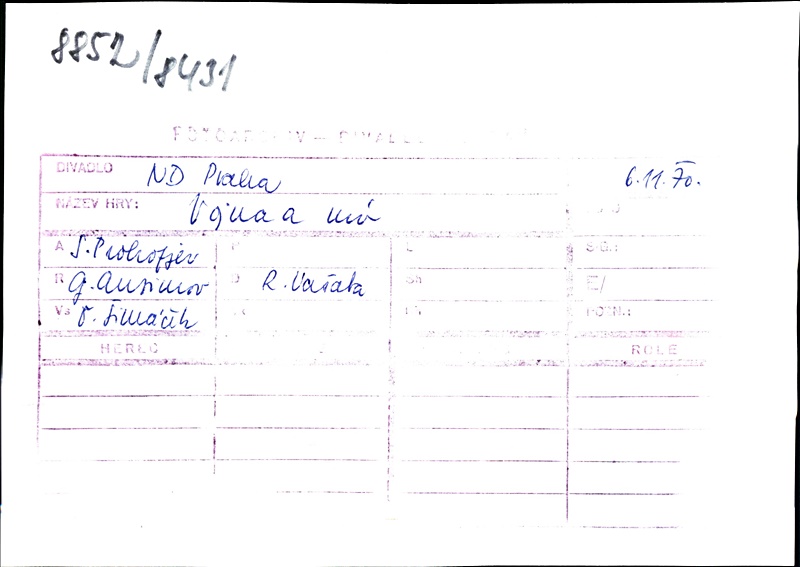 8852/8431
FOTOARCHIV — DIVADLO
DIVADLO ND Praha 6.11.70.
NÁZEV HRY: Vojna a mír
A S. Prokofjev
R G. Ansimov D R. Vašata
Vs V. Šimáčík
POZN.:
HEREC ROLE